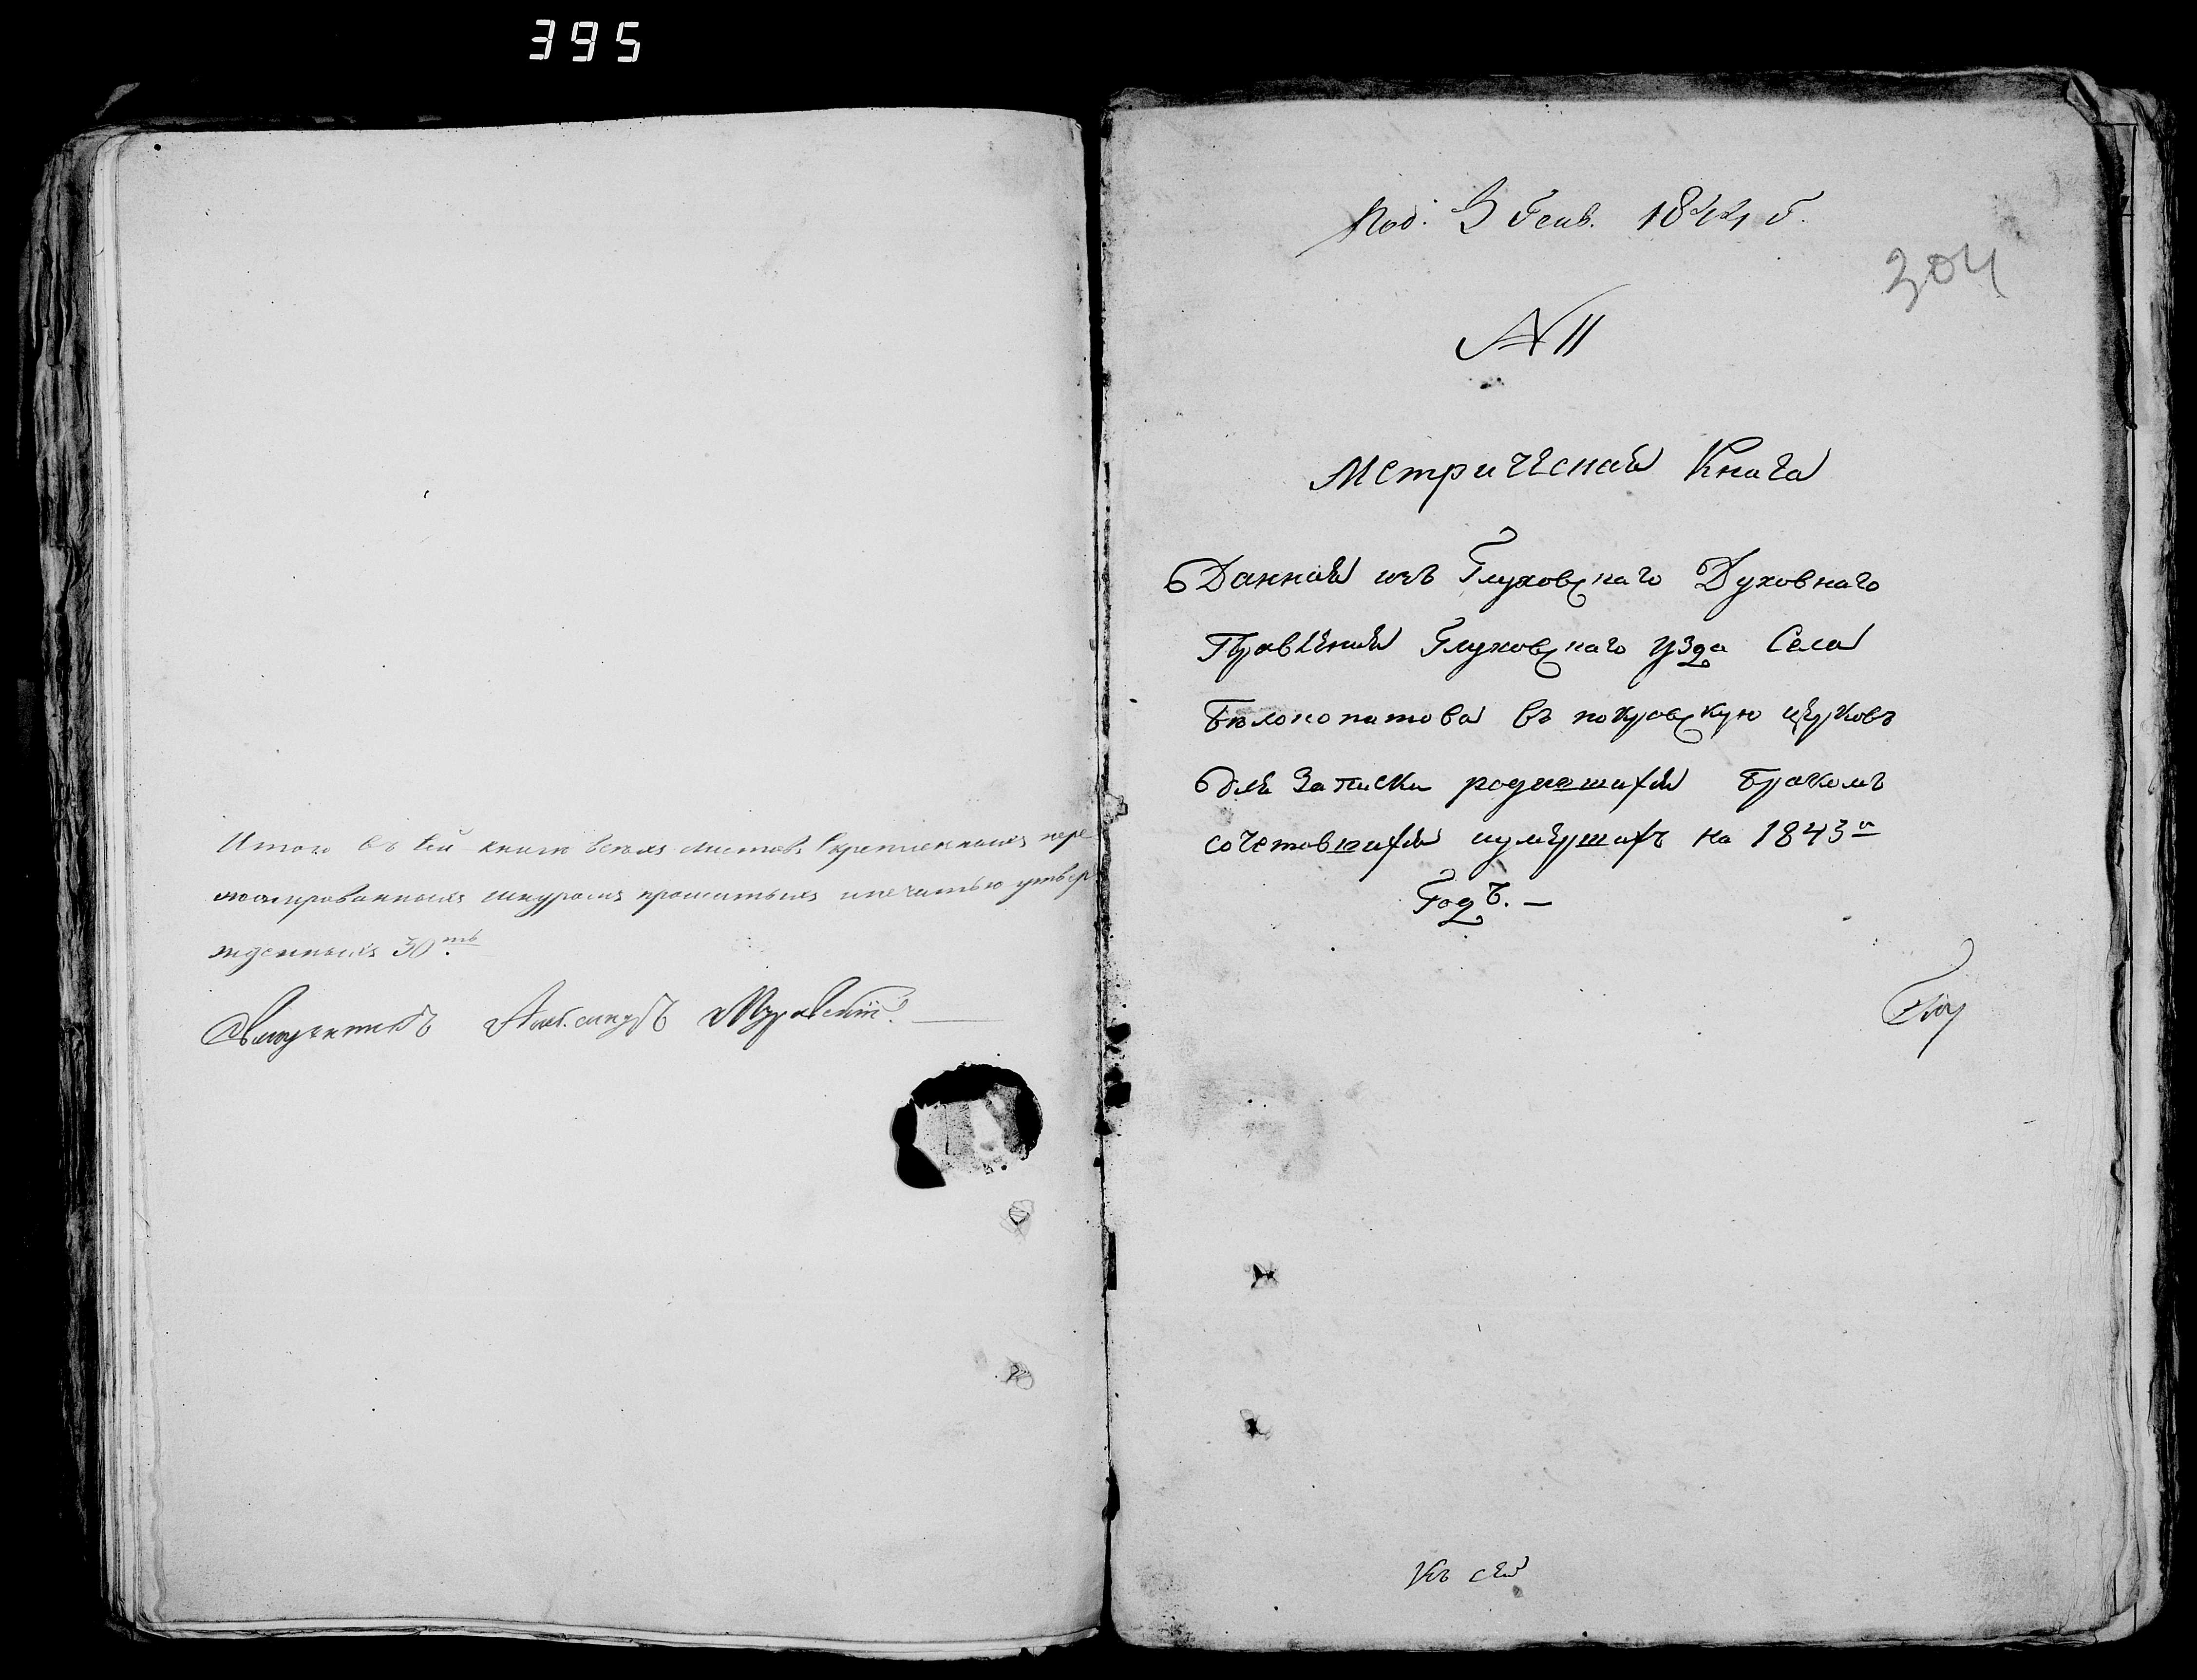 395
Итого въ сей книги всехъ листовъ скрепленныхъ пере
номированныхъ шнуромъ прошитыхъ и печатью утвер
жденныхъ 30.ть
Александръ
Под: 3 Генв. 1844 г.
304
№ 11
Метрическая Книга
Данная изъ Глуховскаго Духовнаго
Правления Глуховскаго узда Села
Белокопитова въ покровскую церковъ
для записки родившихся бракомъ
сочетовшихся иумершихъ на 1843й
Годъ. —
Къ сей